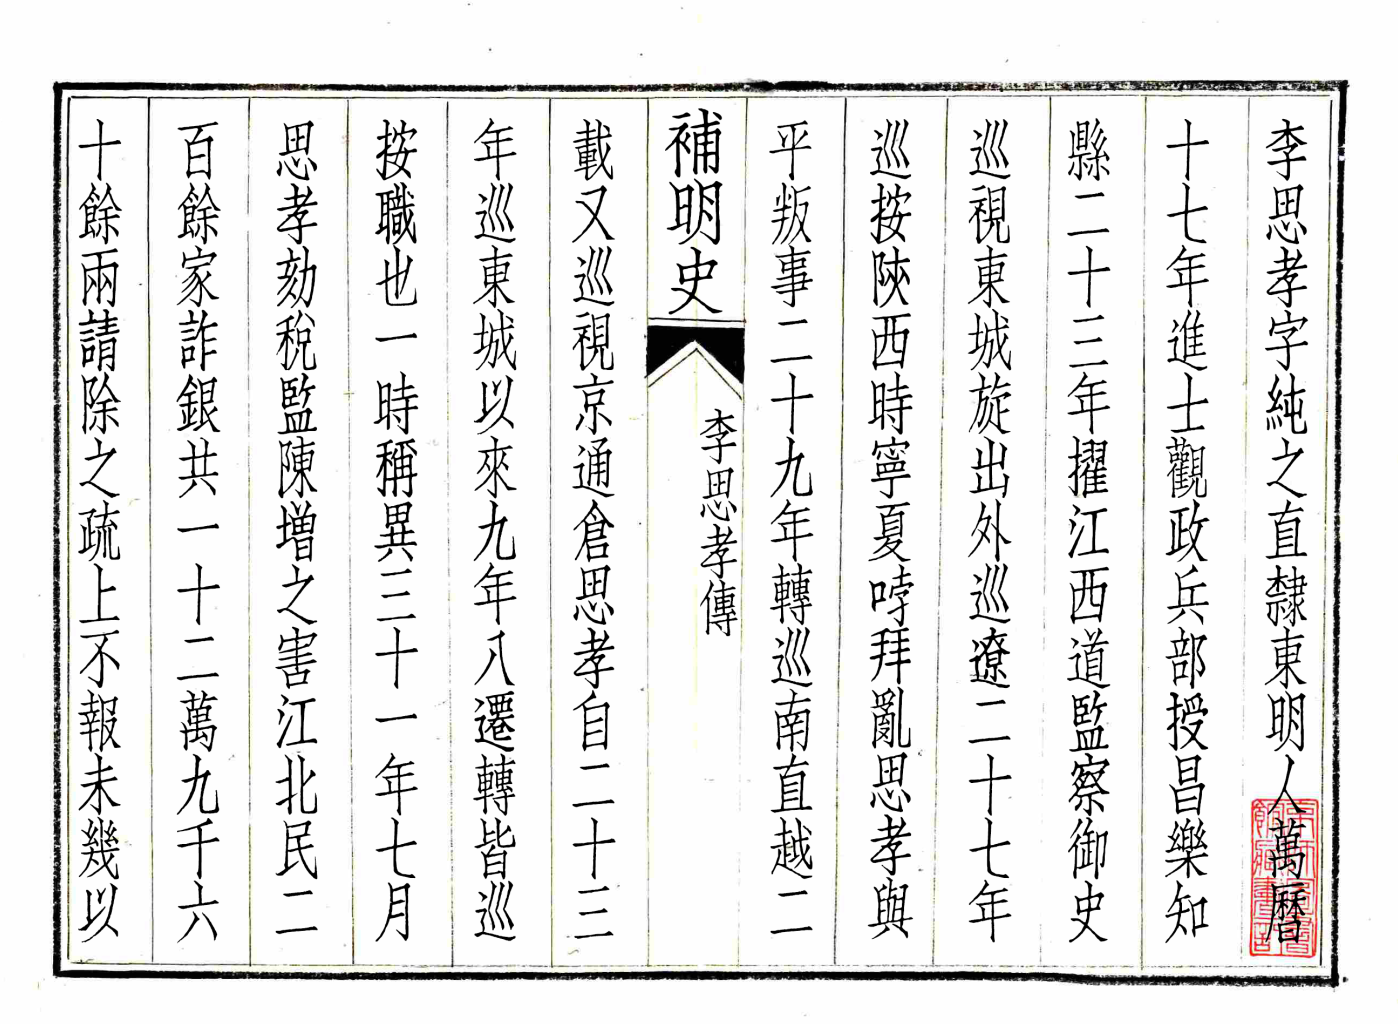 李思孝字純之直隸東明人萬曆
十七年進士觀政兵部授昌樂知
縣二十三年擢江西道監察御史
巡視東城旋出外巡遼二十七年
巡按陝西時寧夏哱拜亂思孝與
平叛事二十九年轉巡南直越二
補明史
李思孝傳
載又巡視京通倉思孝自二十三
年巡東城以來九年八遷轉皆巡
按職也一時稱異三十一年七月
思孝劾稅監陳增之害江北民二
百餘家詐銀共一十二萬九千六
十餘兩請除之疏上不報未幾以